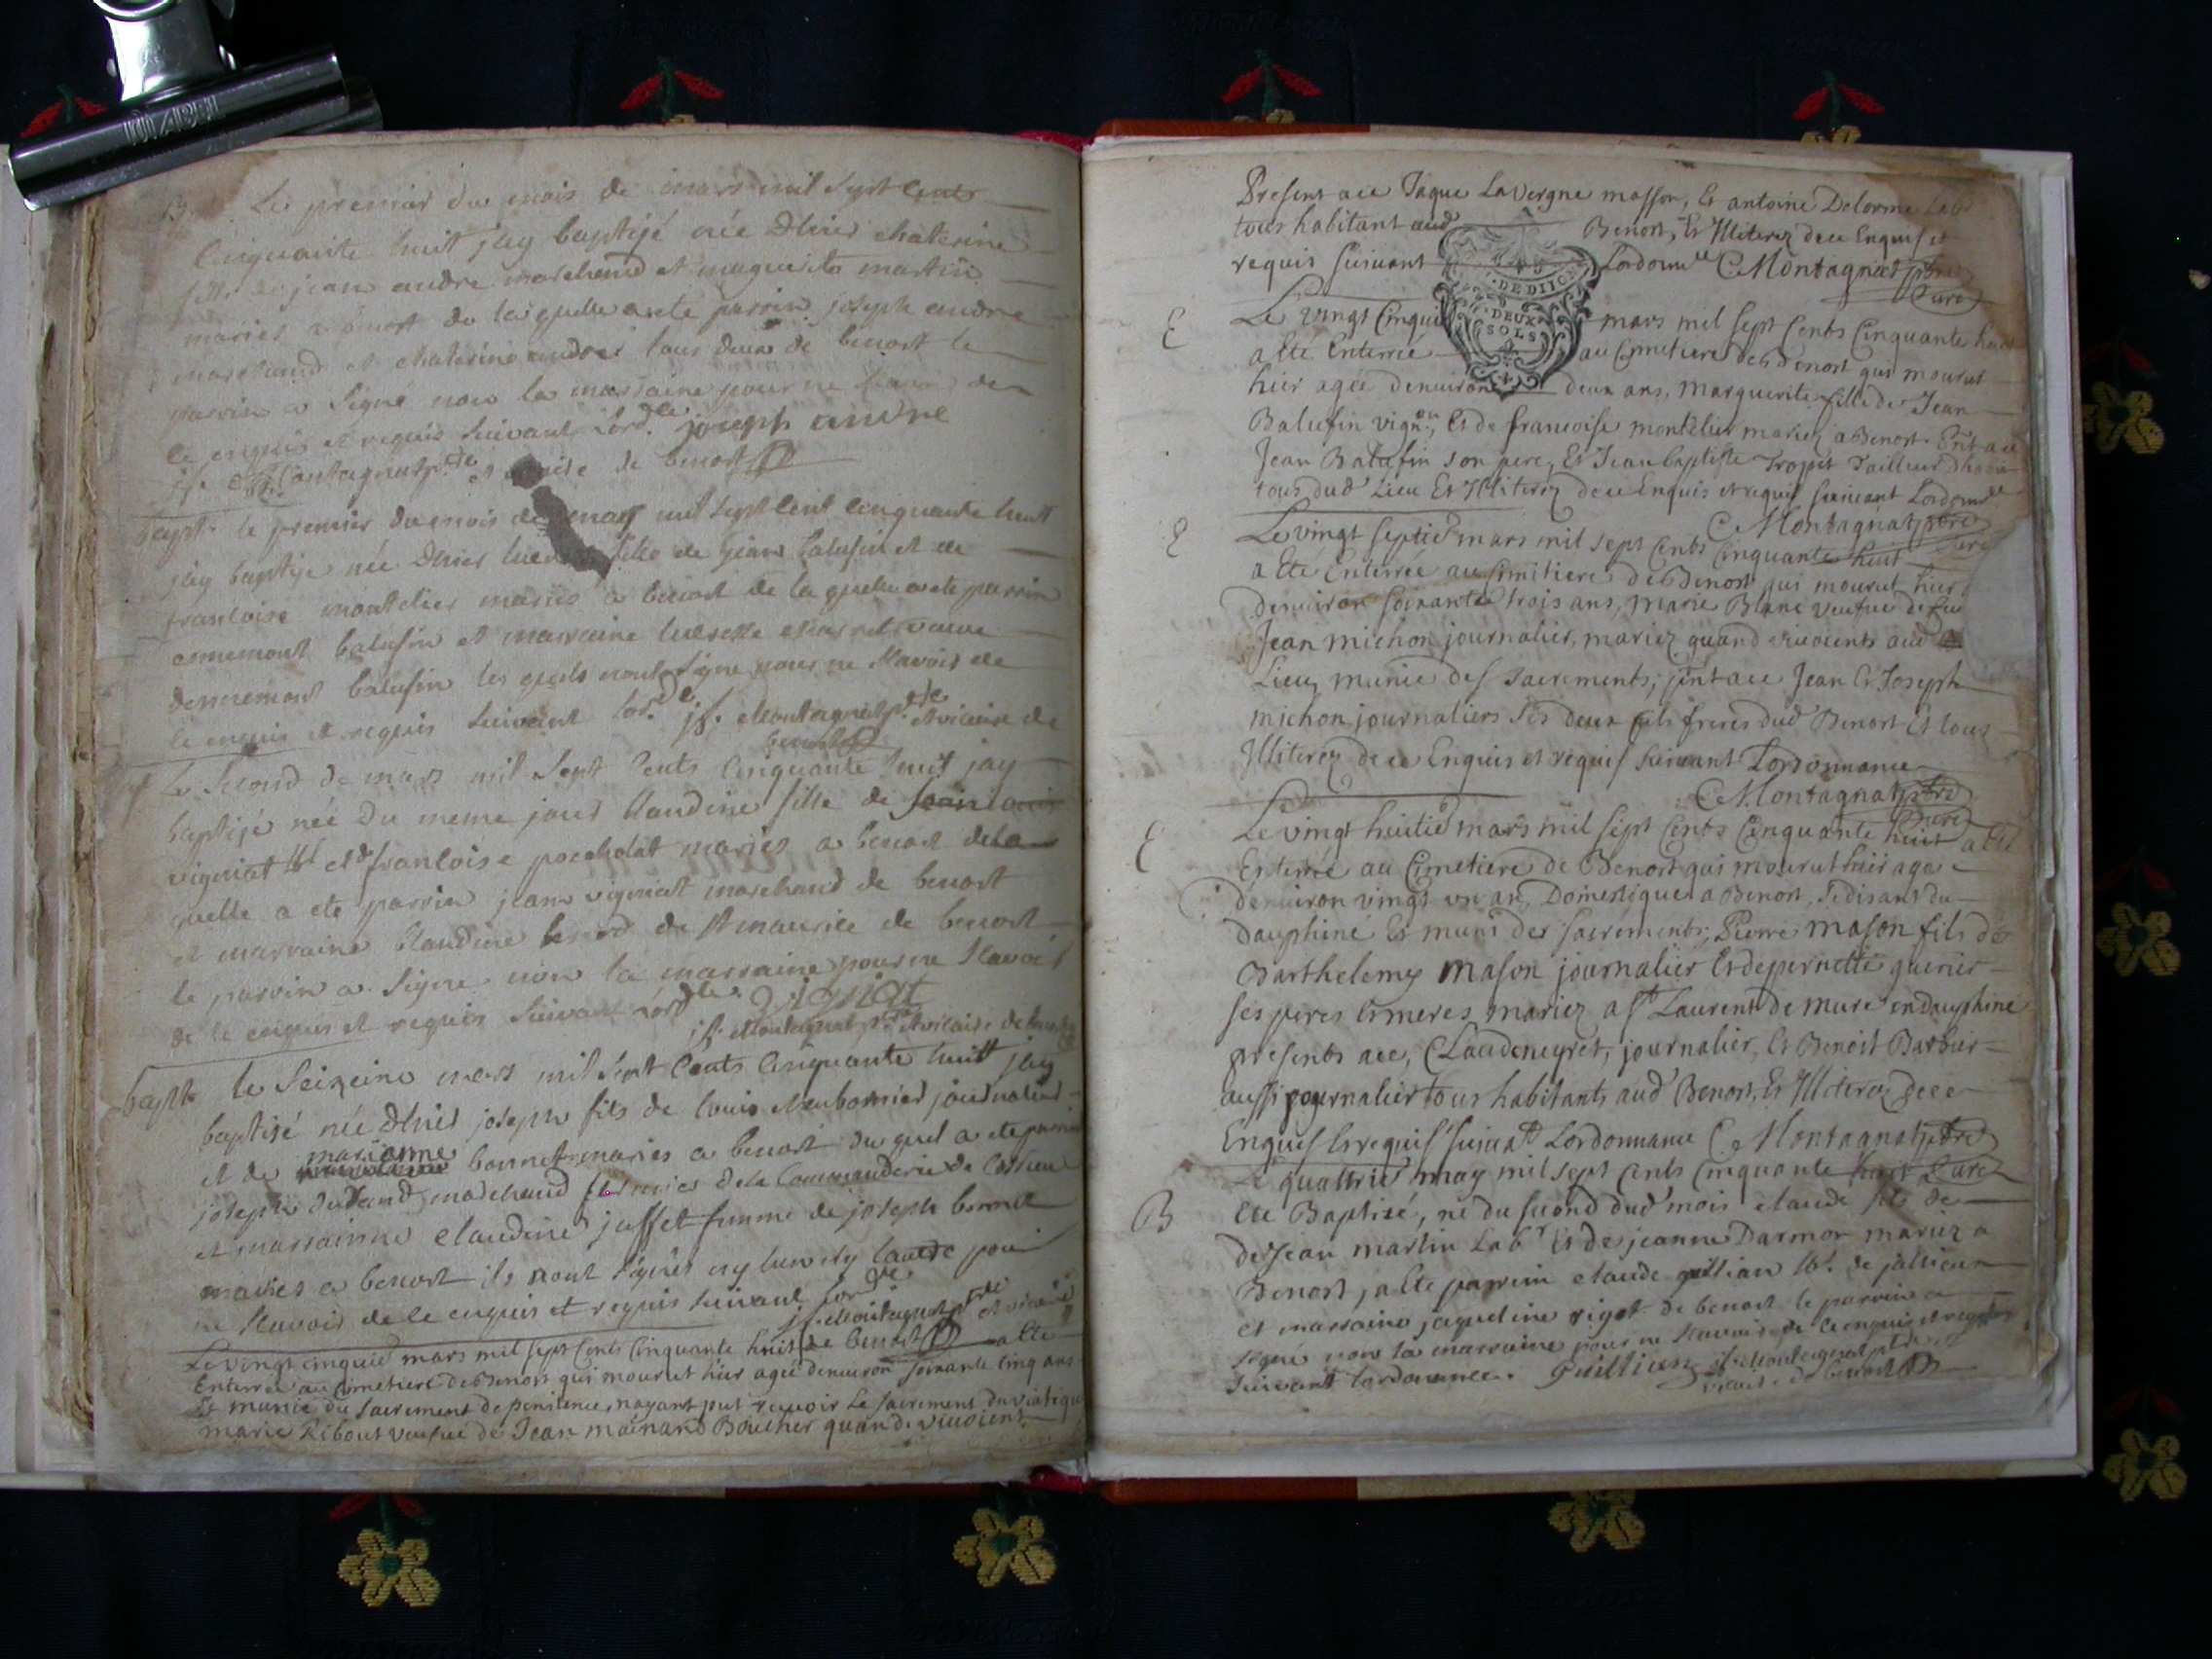 B. Le premier du mois de mars mil sept cents
Cinquante huit jay baptisé née Dhier chaterine
fille de jean andre marchand et marguerite martin
maries a benost de la quelle a ete parrin joseph andre
marchand et chaterine andre tous deux de benost le
parrin a signé non la marraine pour ne scavoir de
ce enquis et requis suivant lord.ce joseph andre
jf. Montagnat p.tre et vicaire de benost
bapt. le premier du mois de mars mil sept cent cinquante huit
jay baptisé née Dhier fille de jean balufin et de
francoise montelier mariés a benost de la quelle a ete parrin
ennemont balufin et marraine veuve
dennemont balufin les quels n'ont signé pour ne scavoir de
ce enquis et requis suivant lor.ce jf. Montagnat p.tre et vicaire de
benost
Le second de mars mil sept cents cinquante huit jay
baptisé née du meme jour Claudine fille de
vigniat et francoise pocholat mariés a benost de la
quelle a ete parrin jean vigniat marchand de benost
et marraine Claudine de St maurice de benost
le parrin a signé non la marraine pour ne scavoir
de ce enquis et requis suivant lord.ce vigniat
jf. Montagnat p.tre et vicaire de benost
bapt. le seizeine mars mil sept Cents Cinquante huit jay
baptisé née Dhier joseph fils de louis journalier
et de marianne bonnet mariés a benost du quel a ete parrin
joseph durand marchand fermier de la Commanderie de
et marrainne claudine juffet femme de joseph bonnet
mariés a benost ils n'ont signés ny lun ny lautre pour
ne scavoir de ce enquis et requis suivant lor.ce
jf. Montagnat p.tre et vicaire
de benost
Le vingt cinquie mars mil sept Cents Cinquante huit a Eté
Enterrée au Cimetiere de Benost qui mourut hier agée denuiron soixante cinq ans
Et munie du sacrement de penitence, nayant put recevoir Le sacrement du viatique
marie Ribout veufue de Jean mainand Boucher quand vivoient
Present ace Jaque LaVergne masson, Et antoine Delorme Lab.
tous habitant aud Benost, Et Illiterez dece Enquis et
requis suivant Lordonn.ce C. Montagnat ptre
Curé
DE DIJON
DEUX
SOLS
E Le vingt Cinquie mars mil sept Cents Cinquante huit
a Eté Enterrée au Cimetiere de Benost qui mourut
hier agée denuiron deux ans, Marguerite fille de Jean
Balufin vign.on, Et de francoise montelier mariez a Benost. Pnt ace
Jean Balufin son pere, Et Jean baptiste Tropet Tailleur Dhabit
tous dud Lieu Et Illiterez dece Enquis et requis suivant Lordonn.ce
C. Montagnat ptre
Curé
E Le vingt septie mars mil sept Cents Cinquante huit
a Eté Enterrée au Cimitiere de Benost qui mourut hier
denuiron soixante trois ans, Marie Blanc veufue de feu
Jean michon journalier, mariez quand vivoients aud
Lieu, munie des sacrements; pnt ace Jean Et Joseph
michon journaliers ses deux fils freres dud Benost Et tous
Illiterez dece Enquis et requis suivant Lordonnance
C. Montagnat ptre
Curé
E Le vingt huitie mars mil sept Cents Cinquante huit a Eté
Enterré au Cimetiere de Benost qui mourut hier agé
denuiron vingt un an, Domestique a Benost, se disant du
dauphiné Et muni des sacrements, Pierre mason fils de
Barthelemy mason journalier Et de pernette guerier
ses peres Et meres mariez a St Laurent de mure en dauphiné
presents ace, Claude neyret, journalier, Et Benoit Barbier
aussi journalier tous habitants aud Benost, Et Illiterez dece
Enquis Et requis suivat Lordonnance C. Montagnat ptre
Curé
B Le quattrie may mil sept Cents Cinquante huit a
Eté Baptisé, né du second dud mois claude fils de
de Jean martin Lab.r Et de jeanne Darmon mariez a
Benost, a Eté parrin claude guillian lab. de
et marraine jaqueline rigot de benost le parrin a
signé non la marraine pour ne scavoir de ce enquis et requis
suivant lordonnance. Guillien jf. Montagnat ptre et
vicaire de benost